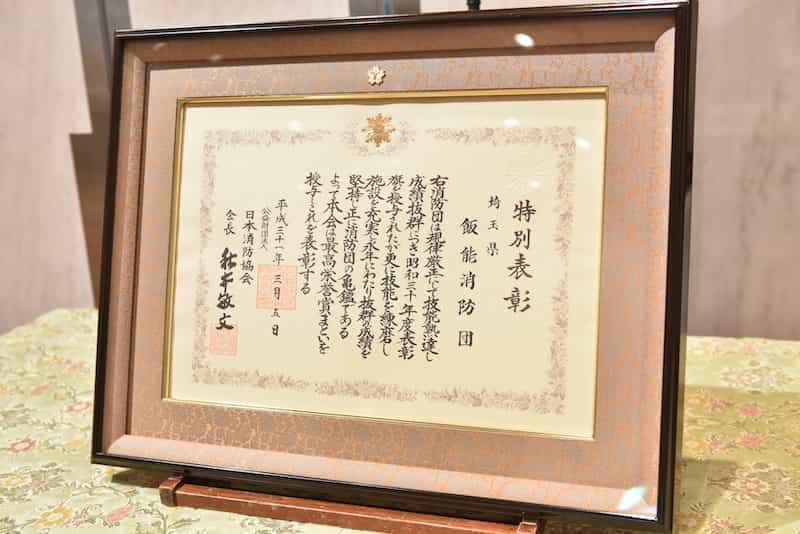 特別表彰
埼玉県
飯能消防団
右消防団は規律厳正にして技能熟達し
成績抜群につき昭和三十年度表彰
旗を授与されたが更に技能を練磨し
施設を充実し永年にわたり抜群の成績を
堅持し正に消防団の亀鑑である
よって本会は最高栄誉賞まといを
授与しこれを表彰する
平成三十一年三月五日
公益財団法人
日本消防協会
会長 秋本敏文